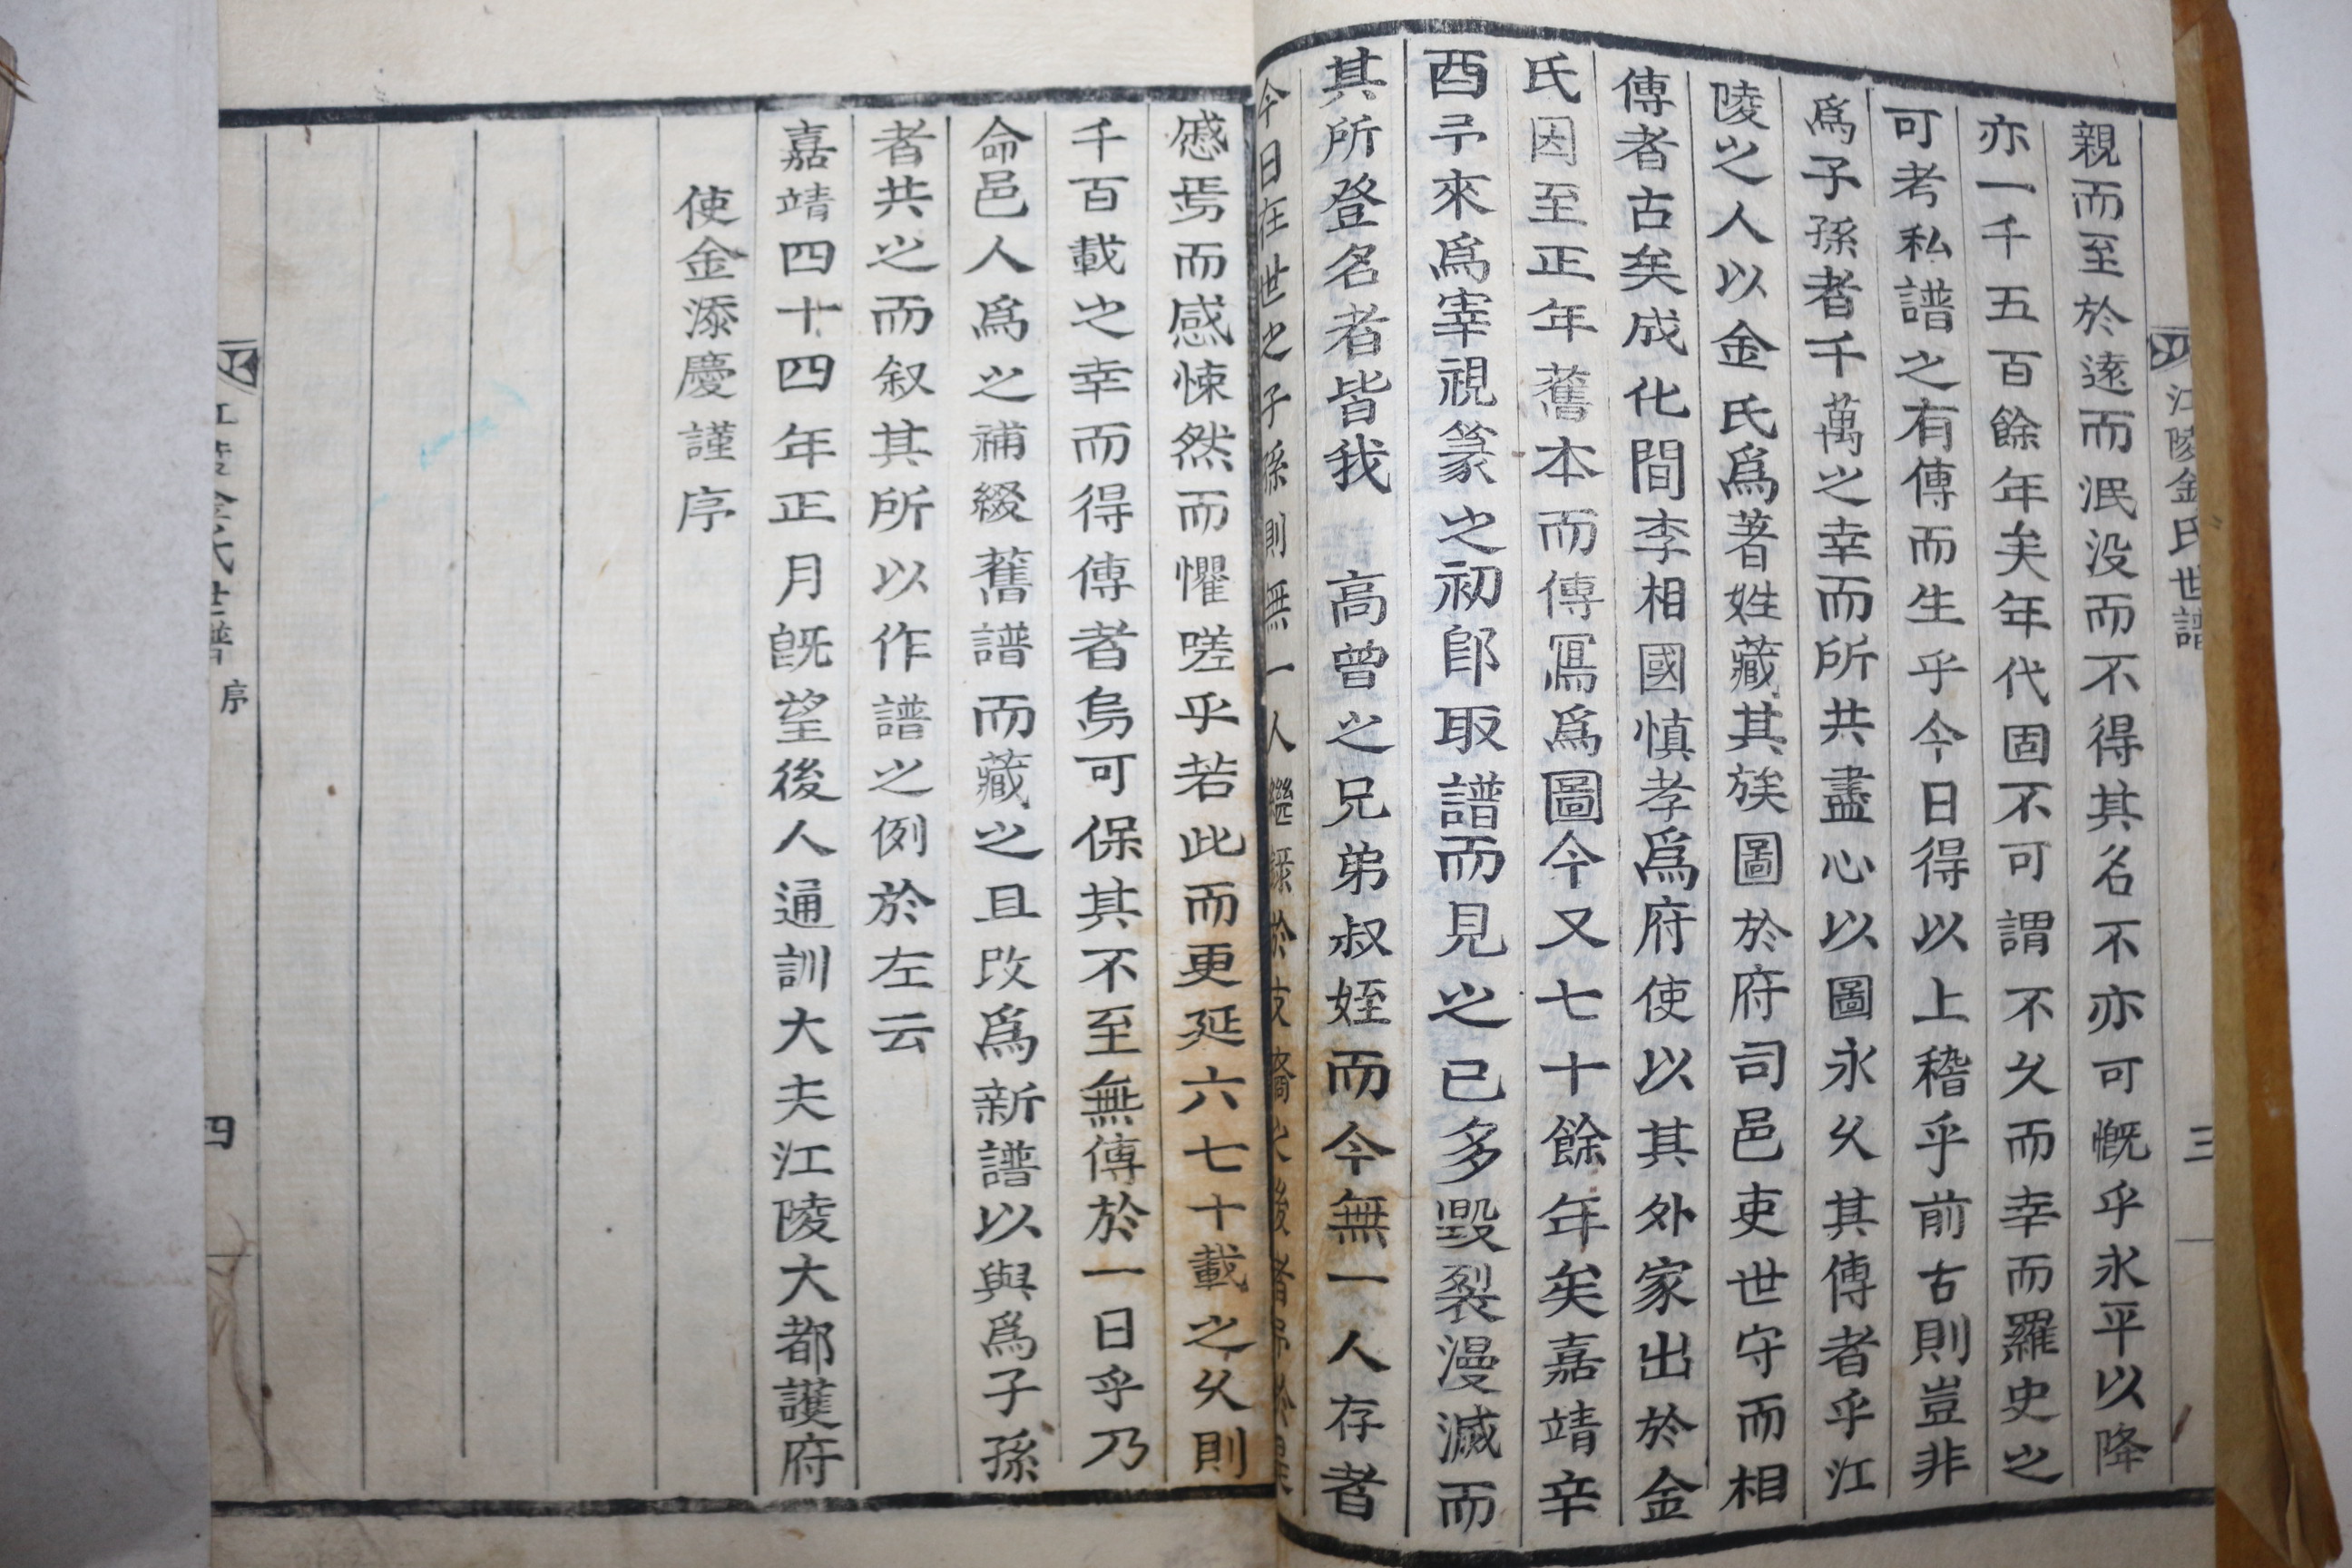 江陵金氏世譜
三
親而至於遠而泯没而不得其名不亦可慨乎永平以降
亦一千五百餘年矣年代固不可謂不久而幸而羅史之
可考私譜之有傳而生乎今日得以上稽乎前古則豈非
爲子孫者千萬之幸而所共盡心以圖永久其傳者乎江
陵之人以金氏爲著姓藏其族圖於府司邑吏世守而相
傳者古矣成化間李相國愼孝爲府使以其外家出於金
氏因至正年舊本而傳寫爲圖今又七十餘年矣嘉靖辛
酉予來爲宰視篆之初卽取譜而見之已多毀裂漫滅而
其所登名者皆我 高曾之兄弟叔姪而今無一人存者
今日在世之子孫則無一人繼錄於支裔之後者
慼焉而感悚然而懼嗟乎若此而更延六七十載之久則
千百載之幸而得傳者烏可保其不至無傳於一日乎乃
命邑人爲之補綴舊譜而藏之且改爲新譜以與爲子孫
者共之而叙其所以作譜之例於左云
嘉靖四十四年正月旣望後人通訓大夫江陵大都護府
使金添慶謹序
江陵金氏世譜 序
四